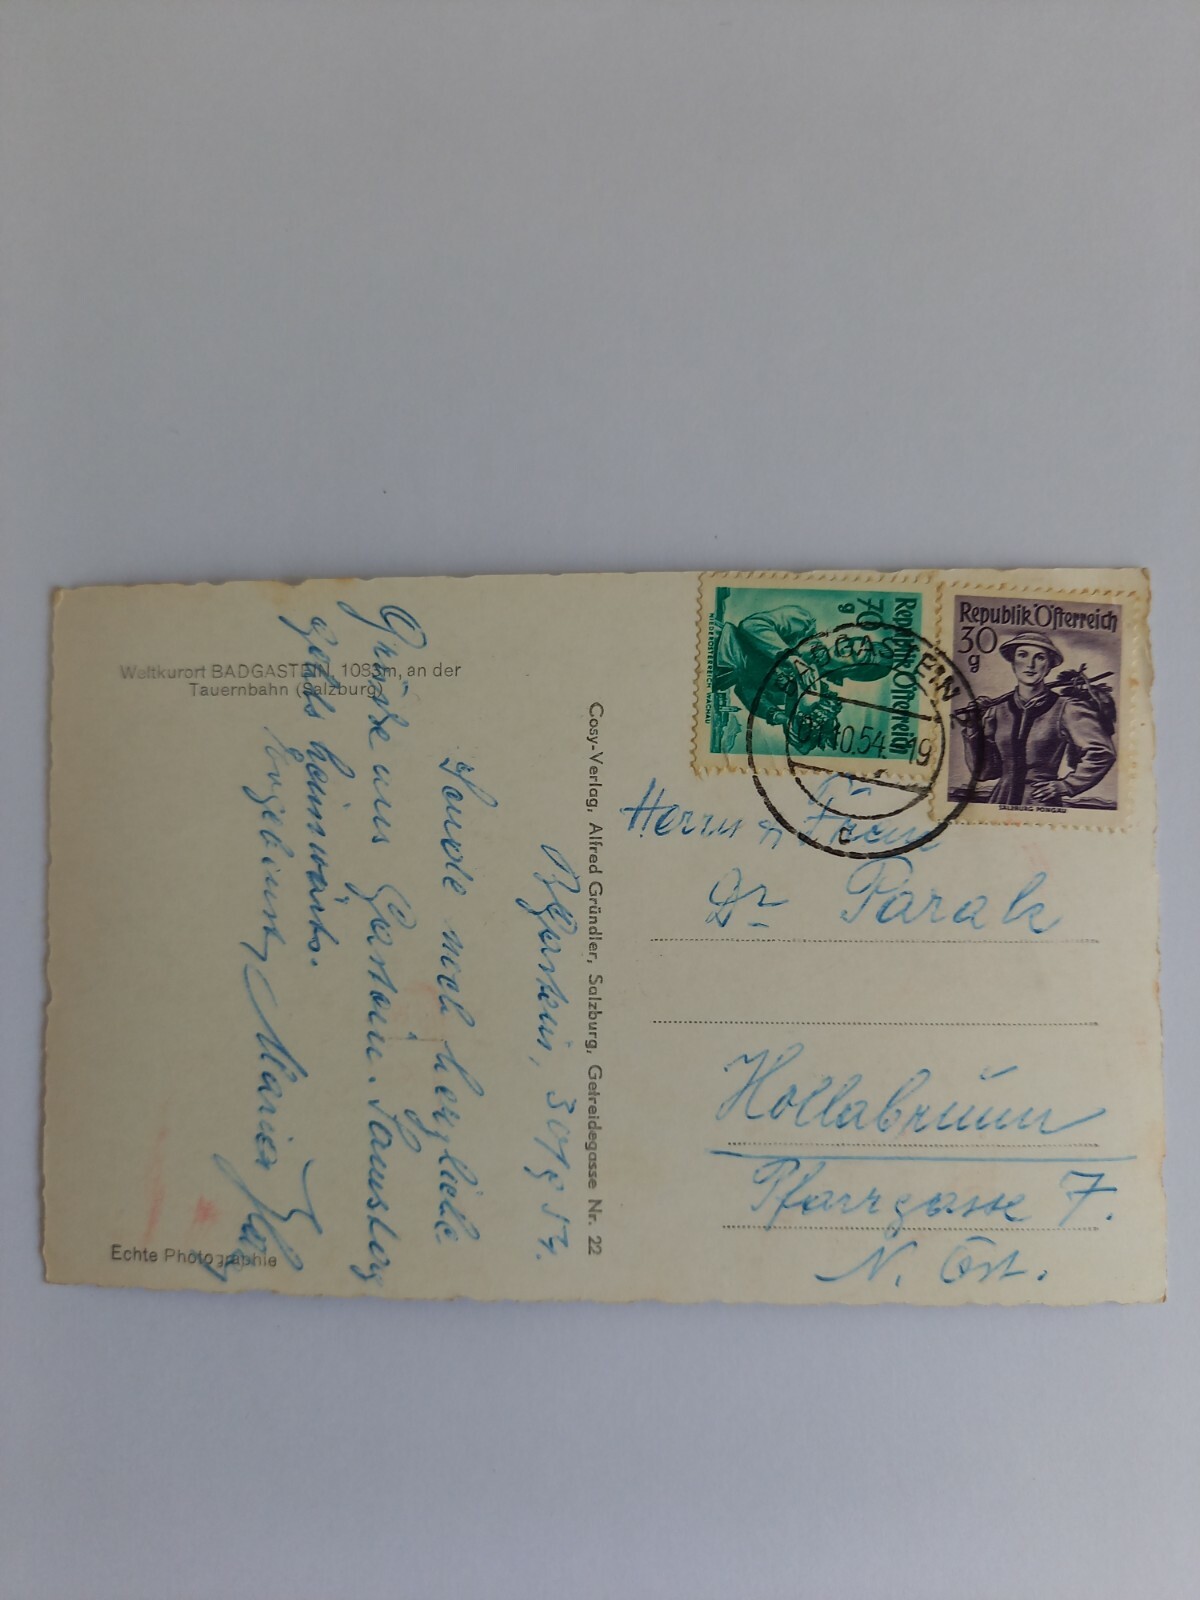 Weltkurort BADGASTEIN, 1083m, an der
Tauernbahn (Salzburg)
Echte Photographie
Bgastein, 30/9 54.
Sende noch herzliche
Grüße aus Gastein. Samstag
gehts heimwärts.
Ergebenst, Marie
Cosy-Verlag, Alfred Gründler, Salzburg, Getreidegasse Nr. 22
Republik Österreich
70 g
NIEDERÖSTERREICH WACHAU
Republik Österreich
30
g
SALZBURG PONGAU
BADGASTEIN 2
10.54.-19
c
Herrn u Frau
Dr Parak
Hollabrunn
Pfarrgasse 7.
N. Öst.